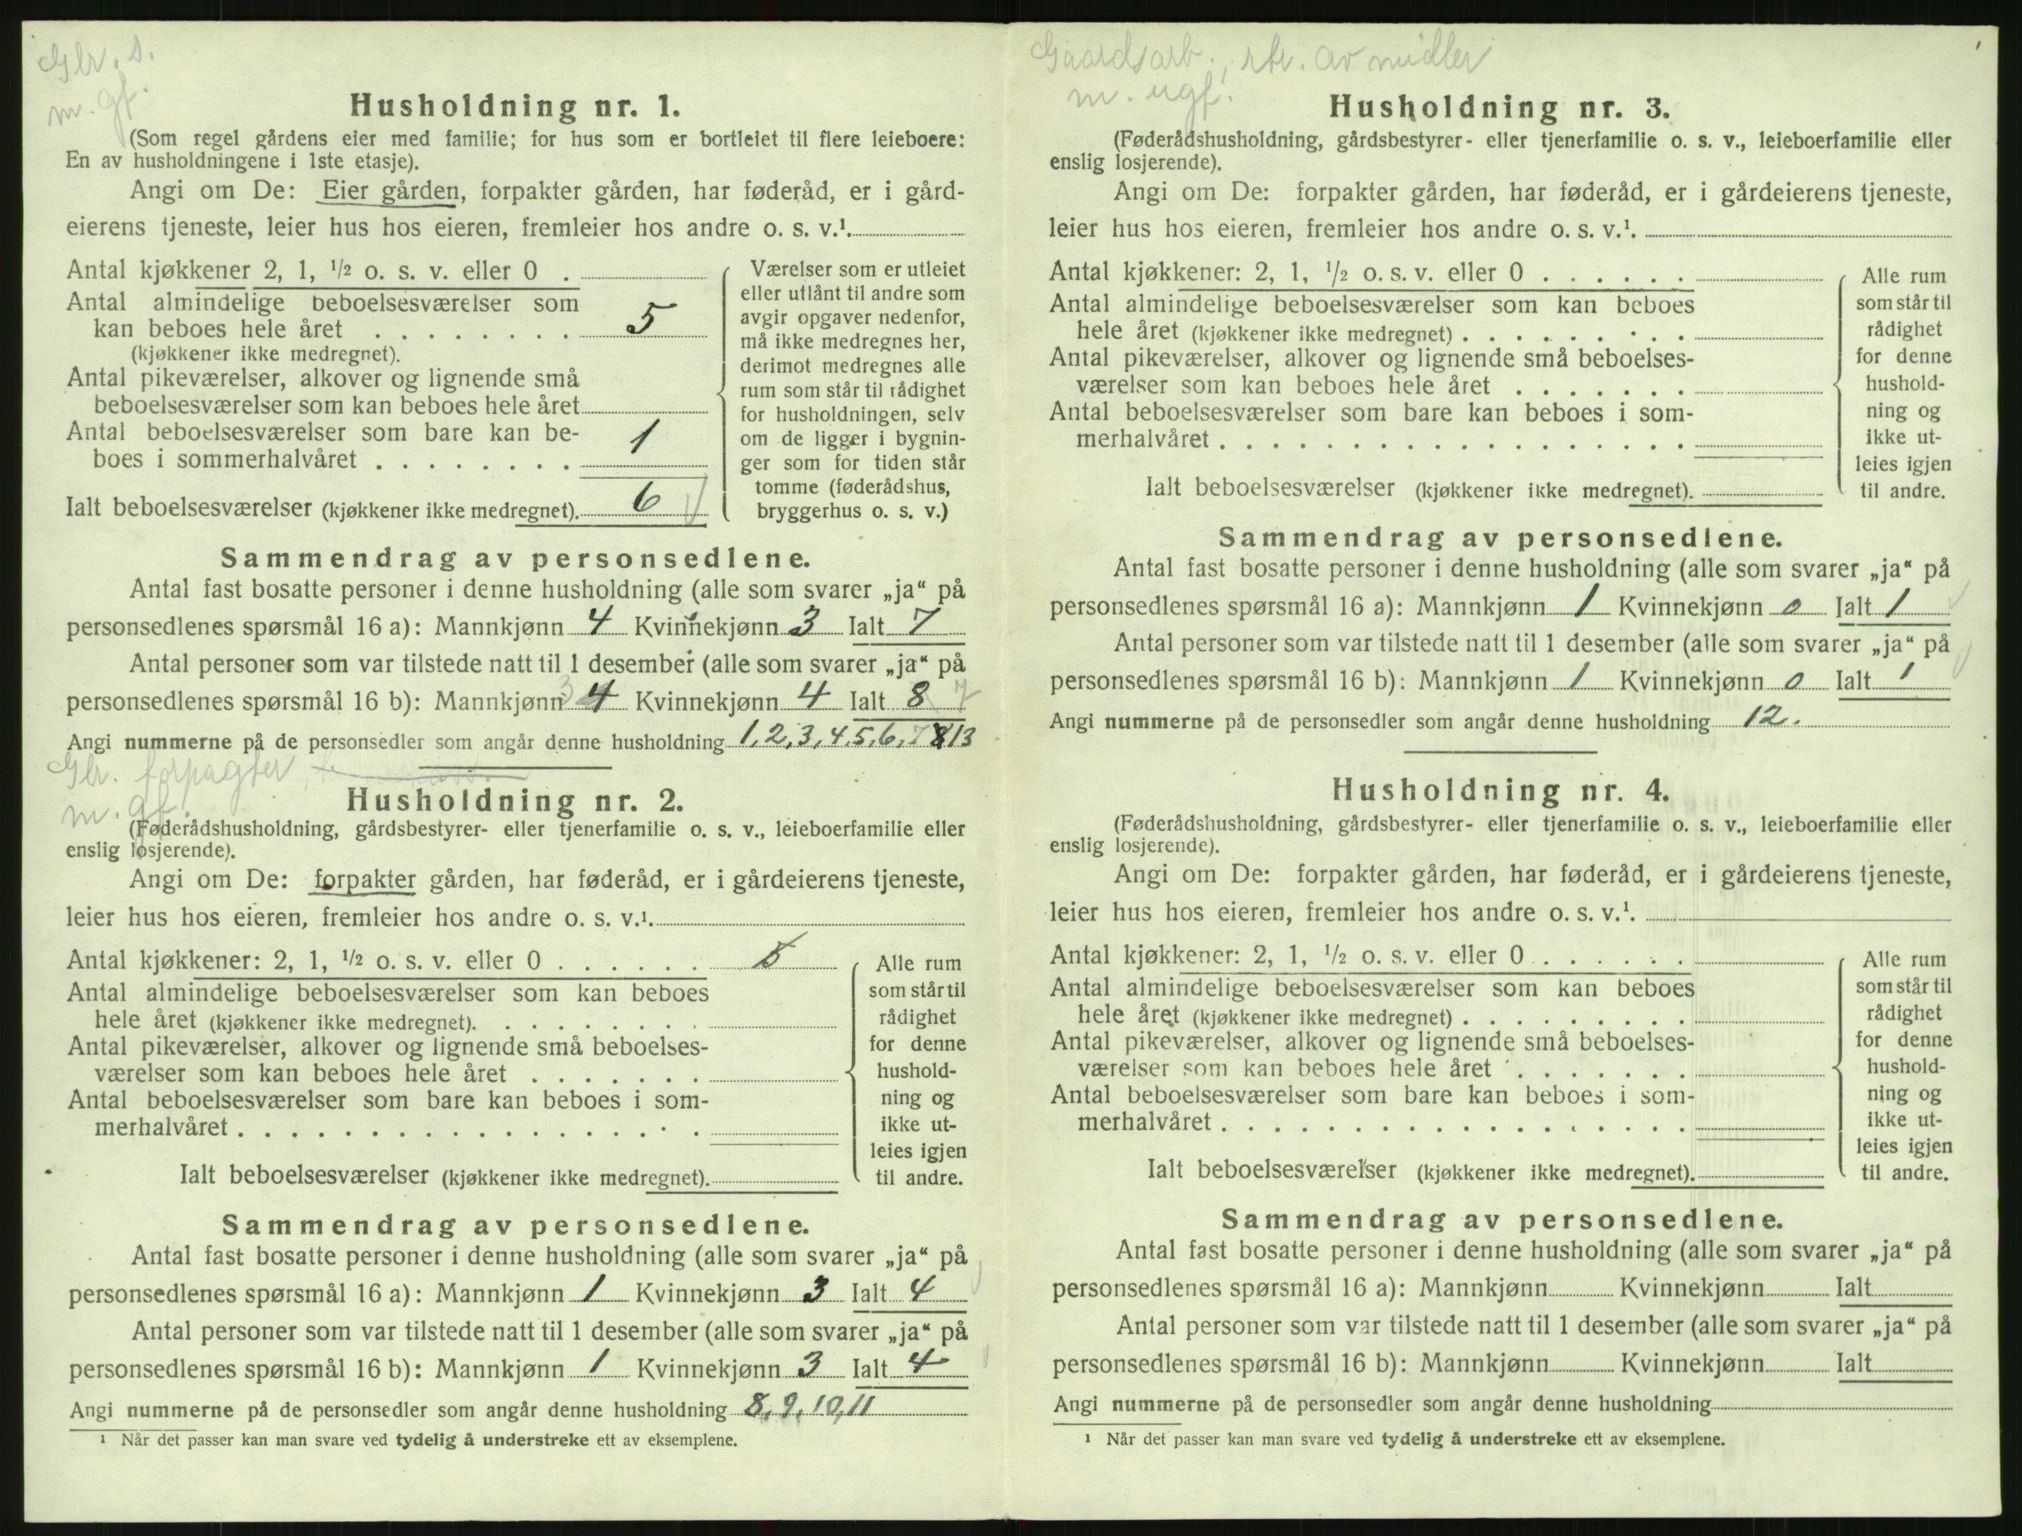 Glr. s.
m. gf.
Husholdning nr. 1.
(Som regel gårdens eier med familie; for hus som er bortleiet til flere leieboere:
En av husholdningene i 1ste etasje).
Angi om De: Eier gården, forpakter gården, har føderåd, er i gård-
eierens tjeneste, leier hus hos eieren, fremleier hos andre o. s. v.¹.
Antal kjøkkener 2, 1, ½ o. s. v. eller 0 .
Antal almindelige beboelsesværelser som
kan beboes hele året . . . . . . . . 5
(kjøkkener ikke medregnet).
Antal pikeværelser, alkover og lignende små
beboelsesværelser som kan beboes hele året
Antal beboelsesværelser som bare kan be-
boes i sommerhalvåret . . . . . . . . 1
Ialt beboelsesværelser (kjøkkener ikke medregnet). 6
Værelser som er utleiet
eller utlånt til andre som
avgir opgaver nedenfor,
må ikke medregnes her,
derimot medregnes alle
rum som står til rådighet
for husholdningen, selv
om de ligger i bygnin-
ger som for tiden står
tomme (føderådshus,
bryggerhus o. s. v.)
Sammendrag av personsedlene.
Antal fast bosatte personer i denne husholdning (alle som svarer „ja“ på
personsedlenes spørsmål 16 a): Mannkjønn 4 Kvinnekjønn 3 Ialt 7
Antal personer som var tilstede natt til 1 desember (alle som svarer „ja“ på
personsedlenes spørsmål 16 b): Mannkjønn 3 4 Kvinnekjønn 4 Ialt 8 7
Angi nummerne på de personsedler som angår denne husholdning 1, 2, 3, 4, 5, 6, 7 8 13
Glr. forpagter
m. gf.
Husholdning nr. 2.
(Føderådshusholdning, gårdsbestyrer- eller tjenerfamilie o. s. v., leieboerfamilie eller
enslig losjerende).
Angi om De: forpakter gården, har føderåd, er i gårdeierens tjeneste,
leier hus hos eieren, fremleier hos andre o. s. v.¹.
Antal kjøkkener: 2, 1, ½ o. s. v. eller 0 . . . . . .
Antal almindelige beboelsesværelser som kan beboes
hele året (kjøkkener ikke medregnet). . . . . . . . .
Antal pikeværelser, alkover og lignende små beboelses-
værelser som kan beboes hele året . . . . . . .
Antal beboelsesværelser som bare kan beboes i som-
merhalvåret . . . . . . . . . . . . . . . . . .
Ialt beboelsesværelser (kjøkkener ikke medregnet).
Alle rum
som står til
rådighet
for denne
hushold-
ning og
ikke ut-
leies igjen
til andre.
Sammendrag av personsedlene.
Antal fast bosatte personer i denne husholdning (alle som svarer „ja“ på
personsedlenes spørsmål 16 a): Mannkjønn 1 Kvinnekjønn 3 Ialt 4
Antal personer som var tilstede natt til 1 desember (alle som svarer „ja“ på
personsedlenes spørsmål 16 b): Mannkjønn 1 Kvinnekjønn 3 Ialt 4
Angi nummerne på de personsedler som angår denne husholdning 8, 9, 10, 11
¹ Når det passer kan man svare ved tydelig å understreke ett av eksemplene.
Gaardsarb., str. av midler
m. ugf.
Husholdning nr. 3.
(Føderådshusholdning, gårdsbestyrer- eller tjenerfamilie o. s. v., leieboerfamilie eller
enslig losjerende).
Angi om De: forpakter gården, har føderåd, er i gårdeierens tjeneste,
leier hus hos eieren, fremleier hos andre o. s. v.¹.
Antal kjøkkener: 2, 1, ½ o. s. v. eller 0 . . . . . .
Antal almindelige beboelsesværelser som kan beboes
hele året (kjøkkener ikke medregnet) . . . . . . . . .
Antal pikeværelser, alkover og lignende små beboelses-
værelser som kan beboes hele året . . . . . . .
Antal beboelsesværelser som bare kan beboes i som-
merhalvåret . . . . . . . . . . . . . . . . . .
Ialt beboelsesværelser (kjøkkener ikke medregnet).
Alle rum
som står til
rådighet
for denne
hushold-
ning og
ikke ut-
leies igjen
til andre.
Sammendrag av personsedlene.
Antal fast bosatte personer i denne husholdning (alle som svarer „ja“ på
personsedlenes spørsmål 16 a): Mannkjønn 1 Kvinnekjønn 0 Ialt 1
Antal personer som var tilstede natt til 1 desember (alle som svarer „ja“ på
personsedlenes spørsmål 16 b): Mannkjønn 1 Kvinnekjønn 0 Ialt 1
Angi nummerne på de personsedler som angår denne husholdning 12.
Husholdning nr. 4.
(Føderådshusholdning, gårdsbestyrer- eller tjenerfamilie o. s. v., leieboerfamilie eller
enslig losjerende).
Angi om De: forpakter gården, har føderåd, er i gårdeierens tjeneste,
leier hus hos eieren, fremleier hos andre o. s. v.¹.
Antal kjøkkener: 2, 1, ½ o. s. v. eller 0 . . . . . .
Antal almindelige beboelsesværelser som kan beboes
hele året (kjøkkener ikke medregnet) . . . . . . . . .
Antal pikeværelser, alkover og lignende små beboelses-
værelser som kan beboes hele året . . . . . . .
Antal beboelsesværelser som bare kan beboes i som-
merhalvåret . . . . . . . . . . . . . . . . . .
Ialt beboelsesværelser (kjøkkener ikke medregnet).
Alle rum
som står til
rådighet
for denne
hushold-
ning og
ikke ut-
leies igjen
til andre.
Sammendrag av personsedlene.
Antal fast bosatte personer i denne husholdning (alle som svarer „ja“ på
personsedlenes spørsmål 16 a): Mannkjønn Kvinnekjønn Ialt
Antal personer som var tilstede natt til 1 desember (alle som svarer „ja“ på
personsedlenes spørsmål 16 b): Mannkjønn Kvinnekjønn Ialt
Angi nummerne på de personsedler som angår denne husholdning
¹ Når det passer kan man svare ved tydelig å understreke ett av eksemplene.